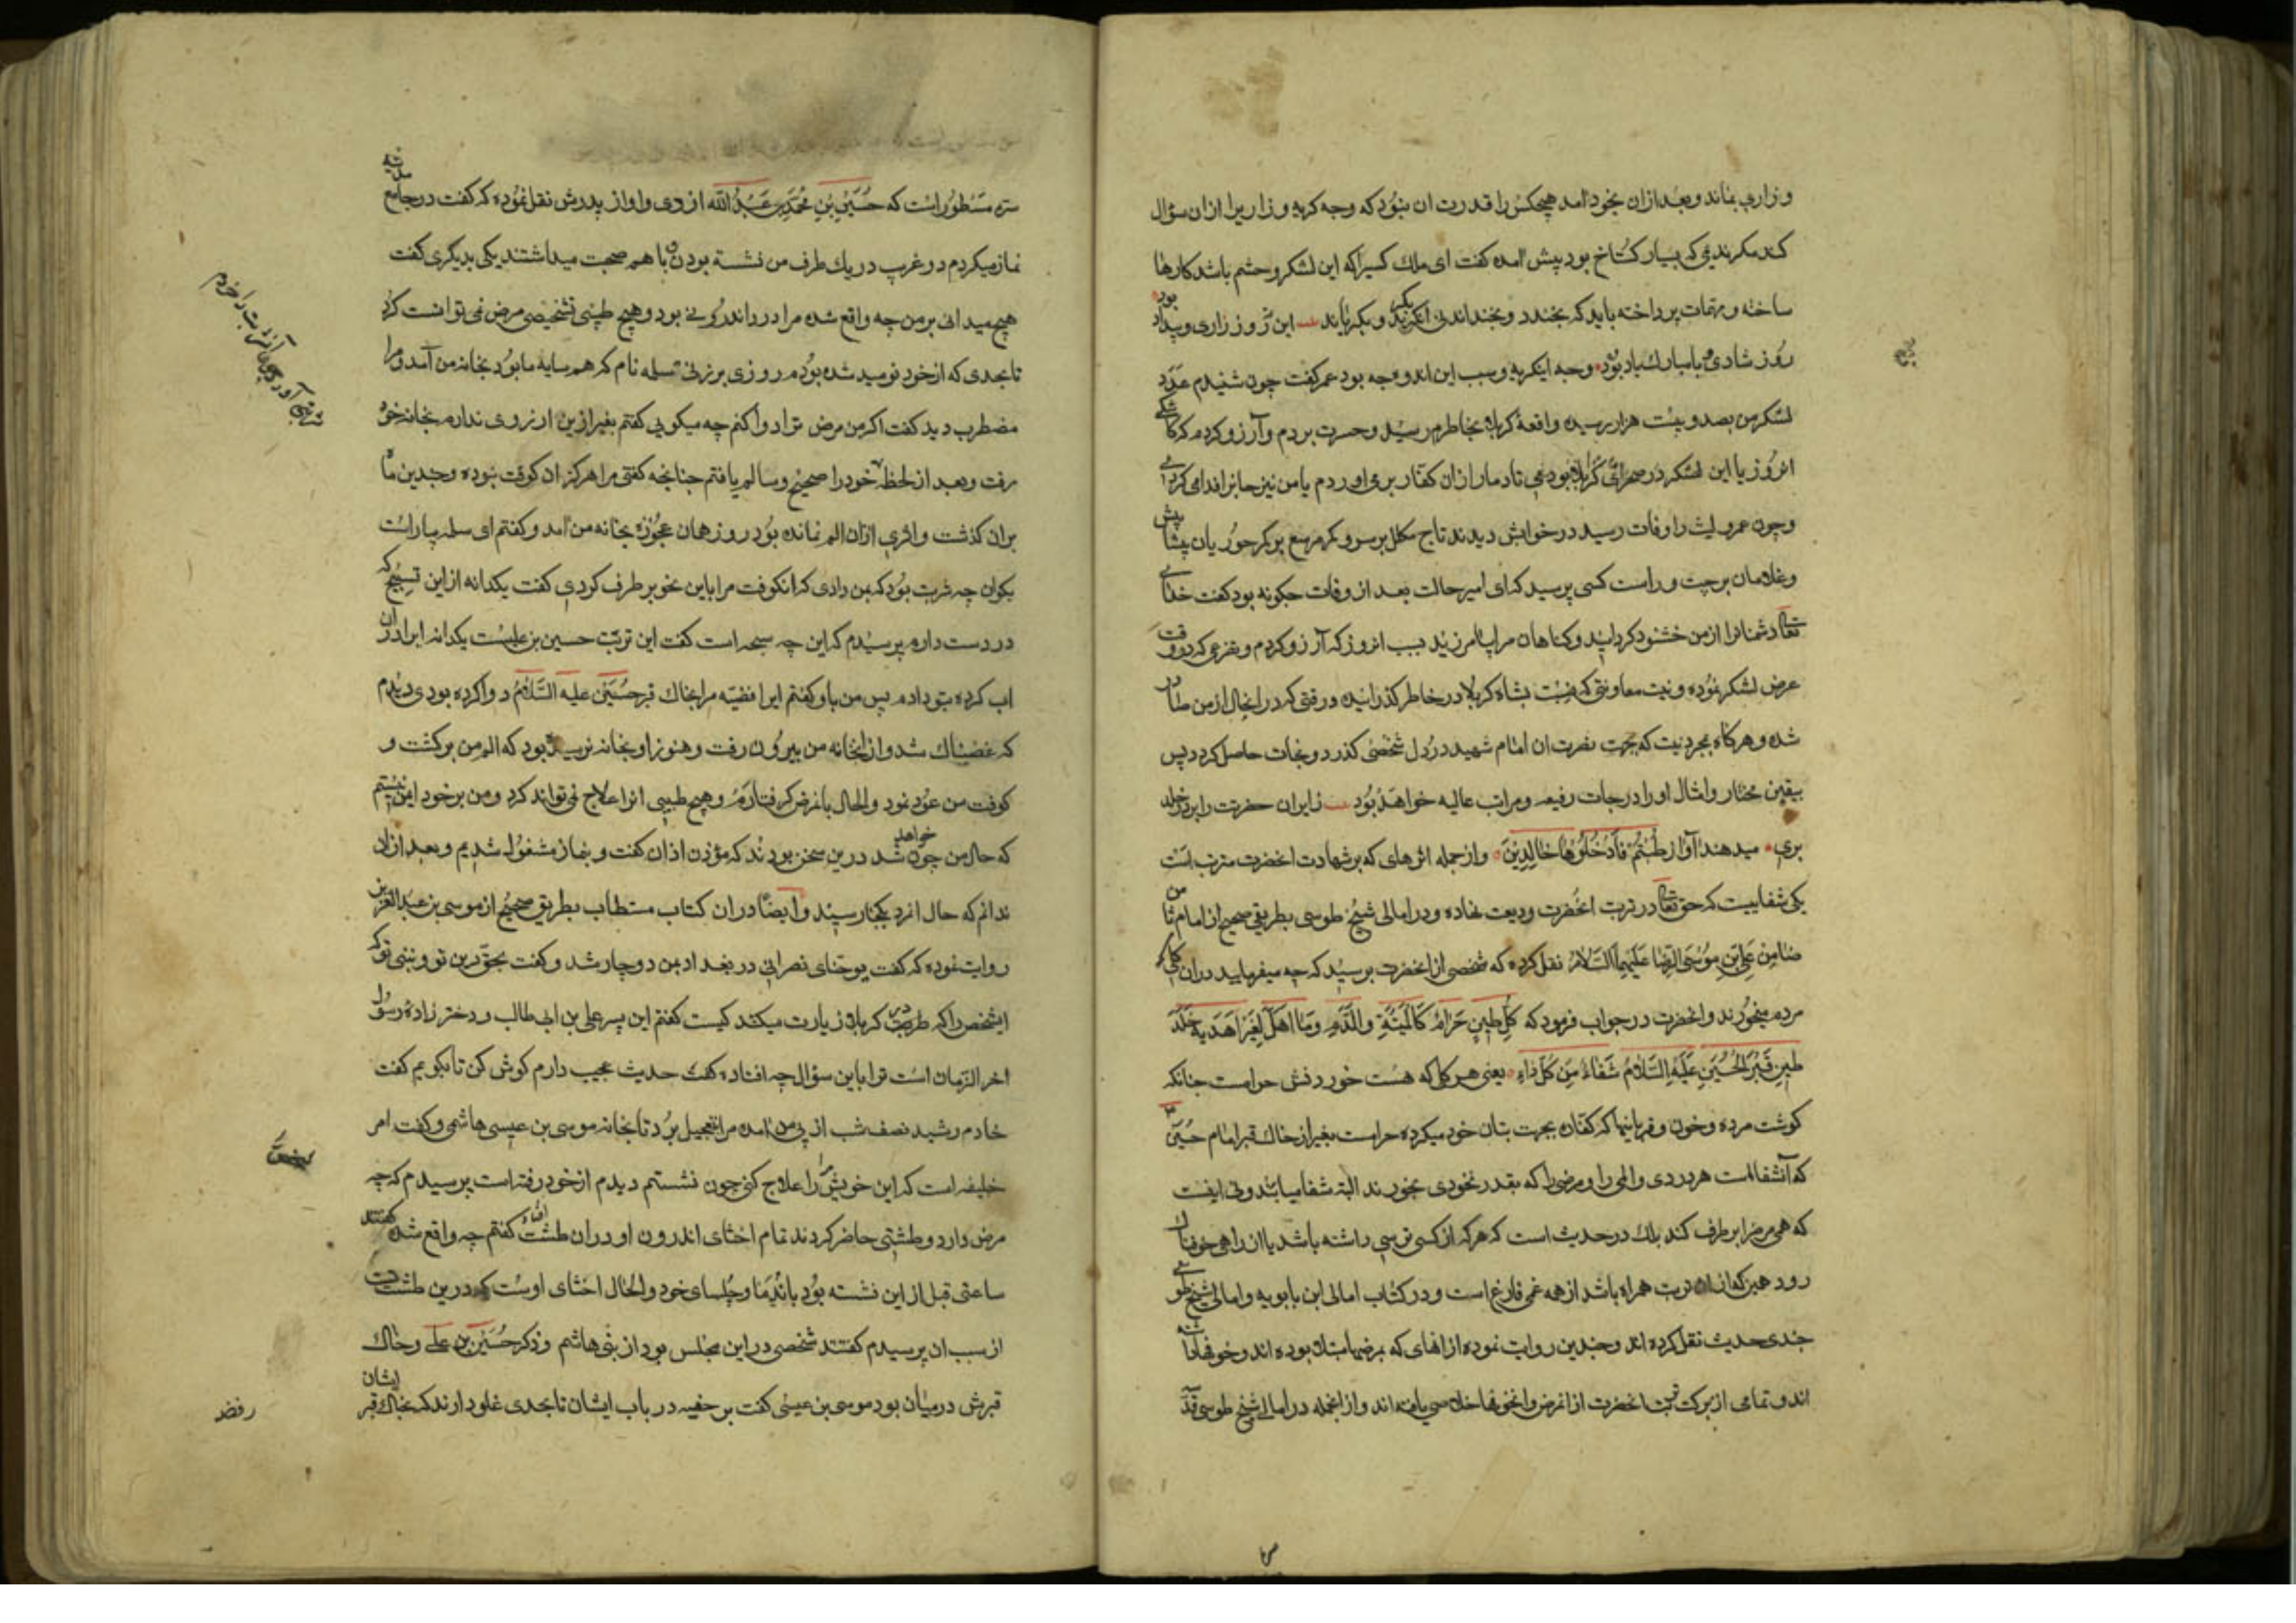 و زاری بماند و بعد از ان بخود امد هیچکس را قدرت ان نبود که وجه کریه و زاریرا ازان سؤال
کند مکر ندیمی که بسیار کستاخ بود پیش امده کفت ای ملک کسیرا که این لشکر و حشم باشد کارها
ساخته و مهمات پرداخته باید که بخندد و بخنداند نی انکه بکرید و بکریاند این روز زاری و بیداد بود
روز شادی و مبارک باد بود وجه اینکریه و سبب این اندوه چه بود عمر کفت چون شنیدم عدد
لشکر من بصد و بیست هزار رسیده واقعهٔ کربلا بخاطرم رسید و حسرت بردم و آرزو کردم که کاشکی
انروز با این لشکر در صحرای کربلا بودمی تا دمار ازان کفار برمی اوردم یا من نیز جانرا فدا می کردمی
و چون عمرو لیث را وفات رسید در خوابش دیدند تاج مکلل بر سر و کمر مرصع بر کمر حوریان پیشاپیش
و غلامان بر چپ و راست کسی پرسید که ای امیر حالت بعد از وفات چکونه بود کفت خدای
تعالی دشمنانرا از من خشنود کردانید و کناهان مرا بیامرزید بسبب انروز که آرزو کردم و تضرعی که در وقت
عرض لشکر نموده و نیت معاونتی که نسبت بشاه کربلا در خاطر کذرانیده در وقتی که در انحال از من صادر
شده و هرکاه بمجرد نیت که بجهت نصرت ان امام شهید در دل شخصی کذرد و نجات حاصل کرد دپس
بیقین مختار و امثال او را درجات رفیعه و مراتب عالیه خواهد بود زایران حضرتت را بر در خلد
برین میدهند آواز طبتم فادخلوها خالدین و از جمله اثرهای که بر شهادت انحضرت مترتب است
یکی شفاییست که حق تعالی در تربت انحضرت ودیعت نهاده و در امالی شیخ طوسی بطریق صحیح از امام ثامن
ضامن علی بن موسی الرضا علیهما السلام نقل کرده که شخصی از انحضرت پرسید که چه میفرمایید دران کلی که
مردم میخورند و انحضرت در جواب فرمود که کل طین حرام کالمیتة والدم وما اهل لغیر الله به خلا
طین قبر الحسین علیه السلام شفاء من کل داء یعنی هر کل که هست خوردنش حرامست چنانکه
کوشت مرده و خون و قربانیها که کفار بجهت بتان خود میکرده حرامست بغیر از خاک قبر امام حسین
که آن شفاست هر دردی و المی را و مرضی را که بقدر نخودی بخورند البته شفا میابند و نی اینست
که همی مرض را بر طرف کند بلک در حدیث است که هرکه از کسی ترسی داشته باشد یا از راهی خوفناک
رود همین که ازان تربت همراه باشد از همه غمی فارغ است و در کتاب امالی ابن بابویه و امالی شیخ طوسی
چندی حدیث نقل کرده اند و چندین روایت نموده از انهای که بمرضها مبتلا بوده اند و خوفها داشته
اند و تمامی از برکت تربت انحضرت ازانمرض و انخوفها خلاصی یافته اند و از انجمله در امالی شیخ طوسی قدس
سره مسطور است که حسین بن محمد بن عبد الله ازدی و او از پدرش نقل نموده که کفت در جامع مدینه
نماز میکردم دو غریب در یک طرف من نشسته بودن با هم صحبت میداشتند یکی بدیکری کفت
هیچ میدانی بر من چه واقع شده مرا درد اندرونی بود و هیچ طبیبی تشخیص مرض نمی توانست کرد
تا بحدی که از خود نومید شده بودم روزی پرزنی سلمه نام که همسایه ما بود بخانه من آمد و مرا
مضطرب دید کفت اکر من مرض ترا دوا کنم چه میکویی کفتم بغیر ازین ارزوی ندارم بخانه خود
رفت و بعد از لحظهٔ خود را صحیح و سالم یافتم چنانچه کفتی مرا هرکز ان کوفت نبوده و چندین ماه
بران کذشت و اثری ازان الم نمانده بود روز همان عجوزه بخانه من امد و کفتم ای سلمه یار است
بکوان چه شربت بود که بمن دادی که انکوفت مرا باین نحو بر طرف کردی کفت یکدانه از این تسبیح که
در دست دارم پرسیدم که این چه سبحه است کفت این تربت حسین بن علیست یکدانه ایرا در ان
اب کرده بتو دادم پس من باو کفتم ای رافضیه مرا بخاک قبر حسین علیه السلام دوا کرده بودی دیدم
که غضبناک شد و از انخانه من بیرون رفت و هنوز او بخانه نرسیده بود که الم من برکشت و
کوفت من عود نمود و الحال بانمرض کرفتارم و هیچ طبیبی انرا علاج نمی تواند کرد و من بر خود ایمن نیستم
که حال من چون خواهد شد درین سخن بودند که مؤذن اذان کفت و بنماز مشغول شدیم و بعد ازان
ندانم که حال انمرد بکجا رسید و ایضا دران کتاب مستطاب بطریق صحیح از موسی بن عبد العزیز
روایت نموده که کفت یوحنای نصرانی در بغداد بمن دوچار شد و کفت بحق دین تو و نبی تو که
اینشخص را که طرف کربلا زیارت میکنند کیست کفتم این پسر علی بن ابی طالب و دخترزادهٔ رسول
اخر الزمان است ترا باین سؤال چه افتاده کفت حدیث عجیب دارم کوش کن تا بکویم کفت
خادم رشید نصف شب از پی من امده مرا بتعجیل برد تا بخانه موسی بن عیسی هاشمی و کفت امر
خلیفه است که این خویش مرا علاج کنی چون نشستم دیدم از خود رفته است پرسیدم که چه
مرض دارد و طشتی حاضر کردند تمام احشای اندرون او دران طشت افتاده کفتم چه واقع شده کفتند
ساعتی قبل از این نشسته بود با ندما و جلسای خود و الحال احشای اوست که درین طشت است
از سبب ان پرسیدم کفتند شخصی در این مجلس بود از بنی هاشم و ذکر حسین بن علی و خاک
قبرش درمیان بود موسی بن عیسی کفت بر حفیه در باب ایشان تا بحدی غلو دارند که بخاک قبر ایشان
رفضه